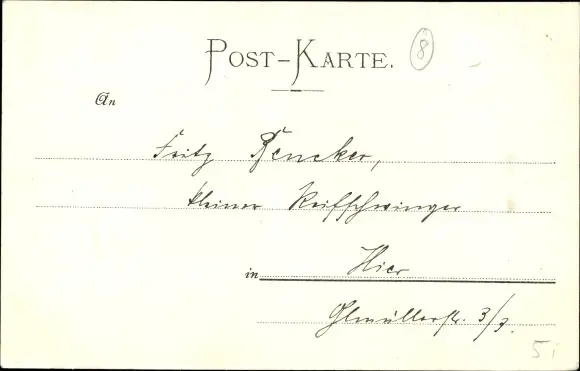 POST-KARTE.
8
An
Fritz Bencker,
kleiner Reifschwinger
in Hier
Ohmüllerstr. 3/3.
5i